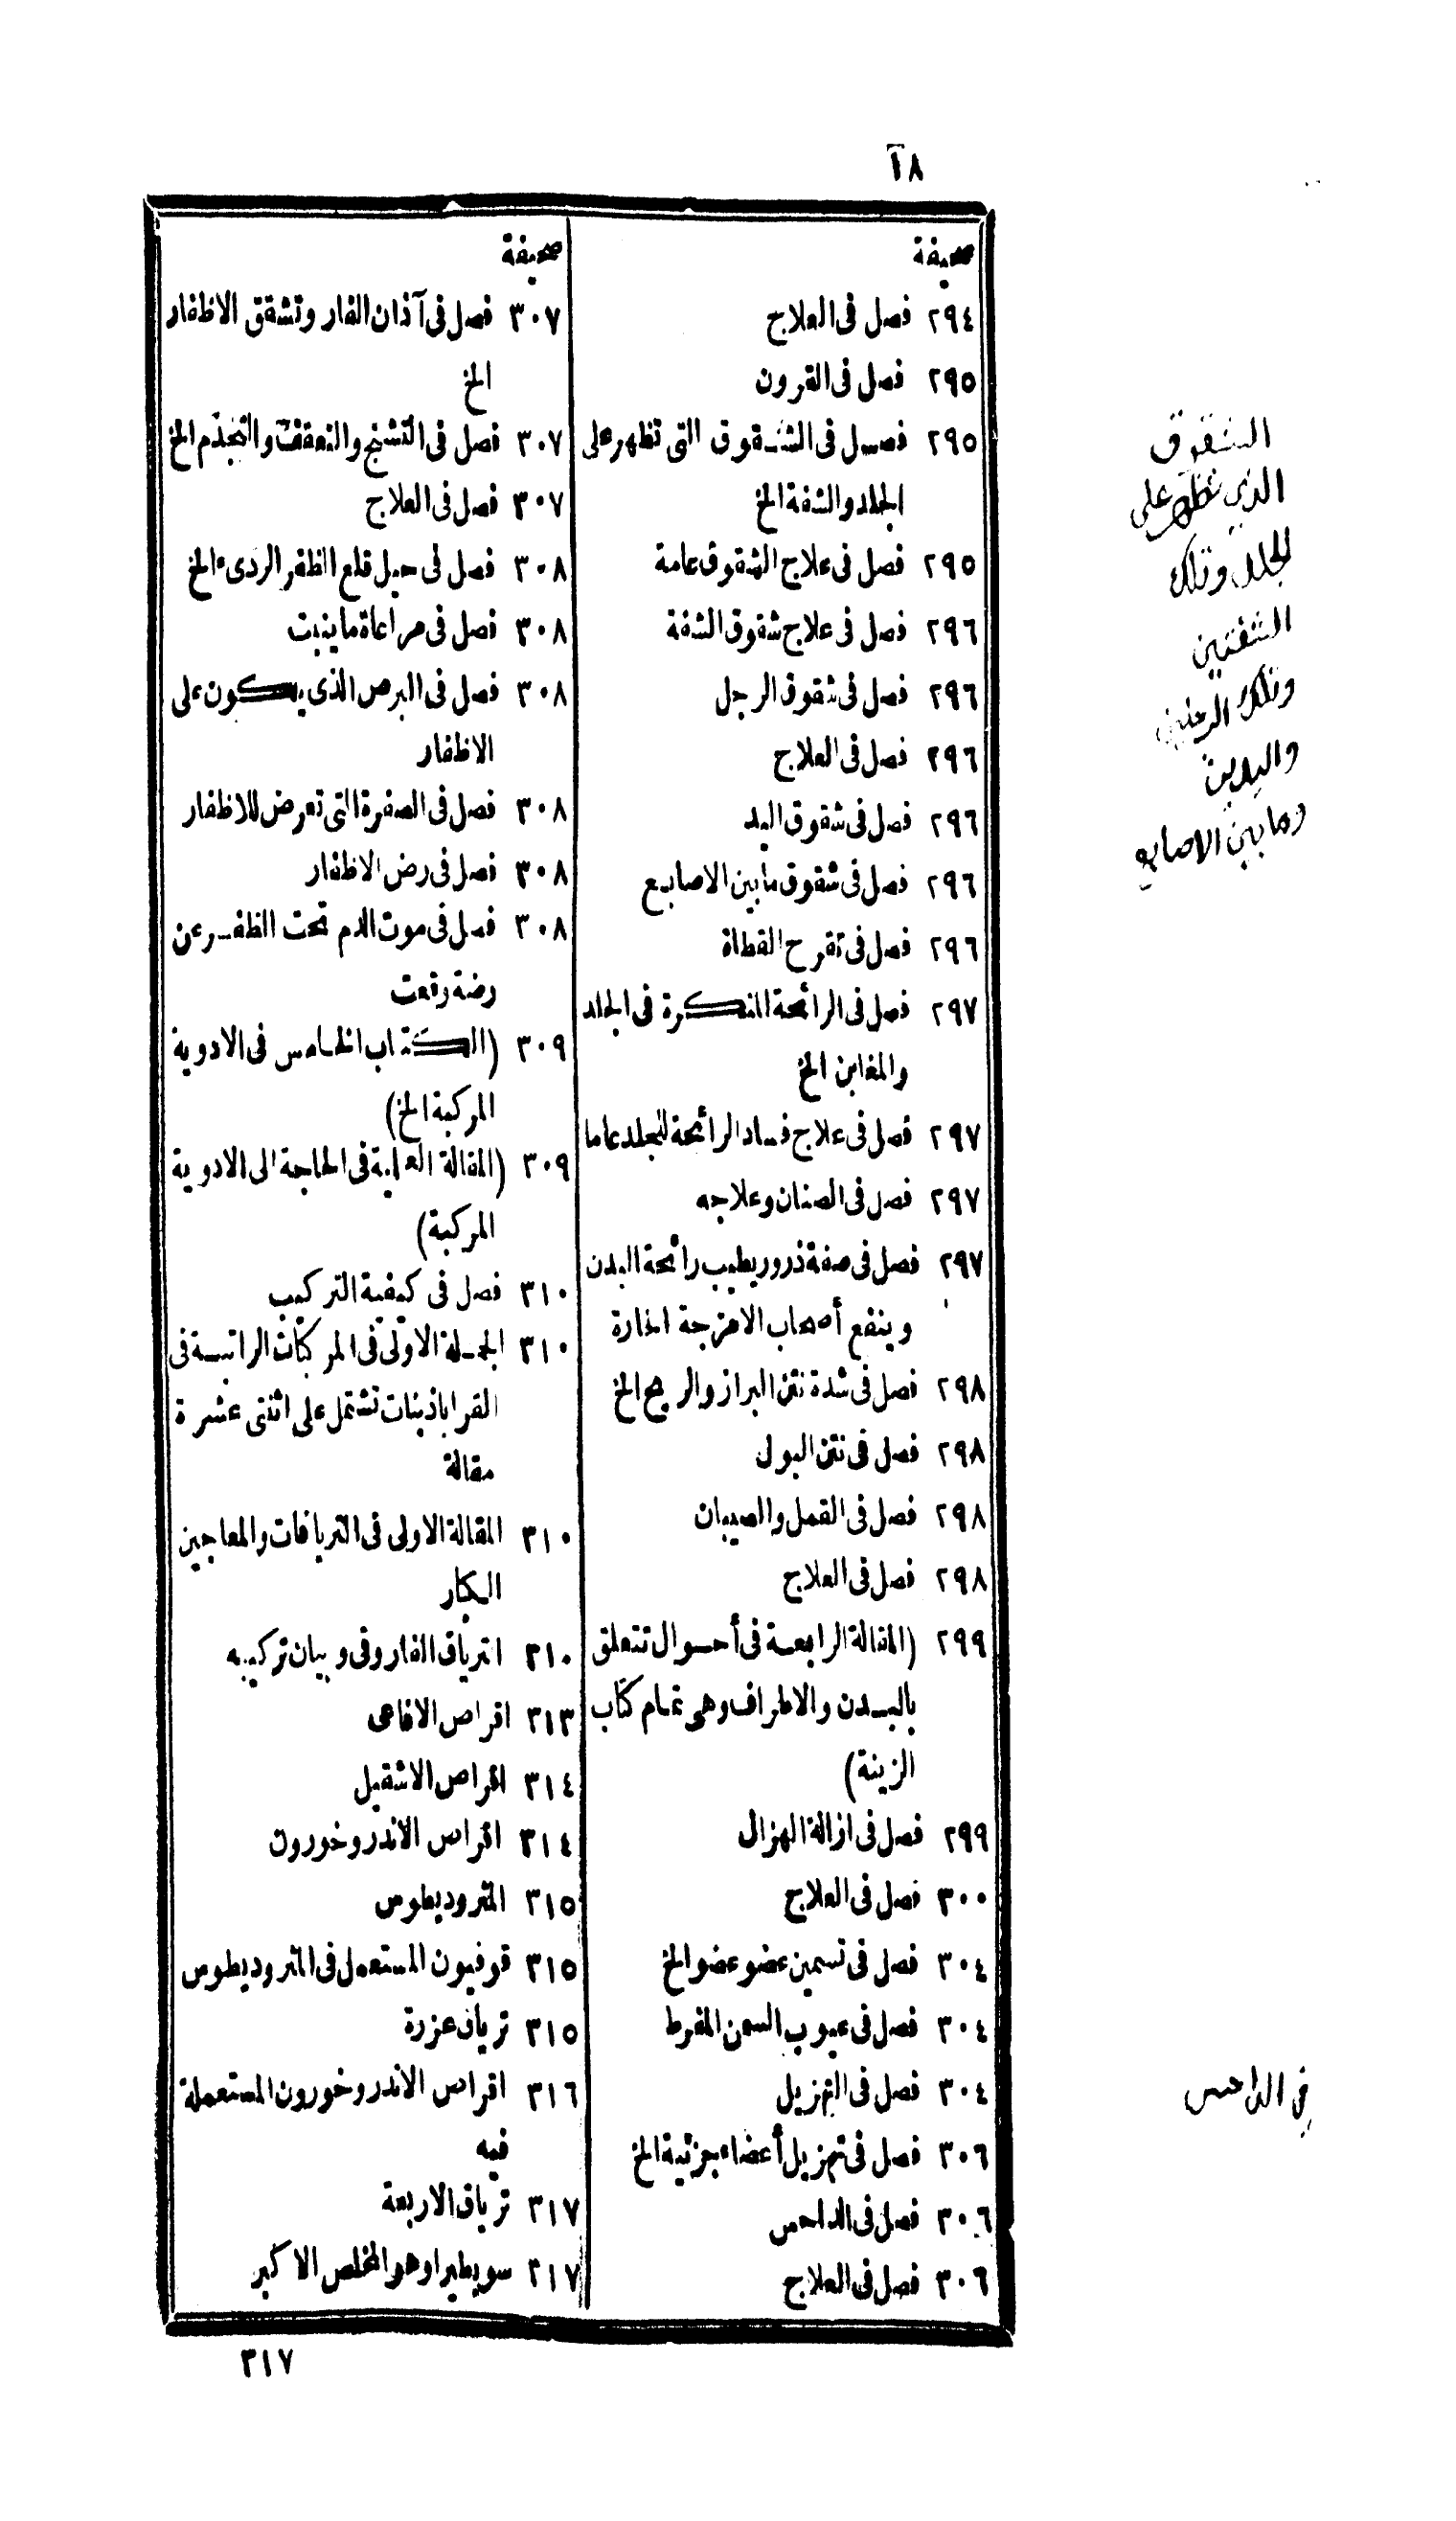 ١٨
صحيفة
٢٩٤ فصل فى العلاج
٢٩٥ فصل فى القرون
٢٩٥ فصل فى الشقوق التى تظهر على
الجلد والشفة الخ
٢٩٥ فصل فى علاج الشقوق عامة
٢٩٦ فصل فى علاج شقوق الشفة
٢٩٦ فصل فى شقوق الرجل
٢٩٦ فصل فى العلاج
٢٩٦ فصل فى شقوق اليد
٢٩٦ فصل فى شقوق مابين الاصابع
٢٩٦ فصل فى تقرح القطاة
٢٩٧ فصل فى الرائحة المنكرة فى الجلد
والمغابن الخ
٢٩٧ فصل فى علاج فساد الرائحة للجلد عاما
٢٩٧ فصل فى الصنان وعلاجه
٢٩٧ فصل فى صفة ذرور يطيب رائحة البدن
وينفع أصحاب الامزجة الحارة
٢٩٨ فصل فى شدة نتن البراز والريح الخ
٢٩٨ فصل فى نتن البول
٢٩٨ فصل فى القمل والصيبان
٢٩٨ فصل فى العلاج
٢٩٩ (المقالة الرابعة فى أحوال تتعلق
بالبدن والاطراف وهى تمام كتاب
الزينة)
٢٩٩ فصل فى ازالة الهزال
٣٠٠ فصل فى العلاج
٣٠٤ فصل فى تسمين عضو عضو الخ
٣٠٤ فصل فى عيوب السمن المفرط
٣٠٤ فصل فى التهزيل
٣٠٦ فصل فى تهزيل أعضاء جزئية الخ
٣٠٦ فصل فى الداحس
٣٠٦ فصل فى العلاج
صحيفة
٣٠٧ فصل فى آذان الفار وتشقق الاظفار
الخ
٣٠٧ فصل فى التشنج والتعقف والتجذم الخ
٣٠٧ فصل فى العلاج
٣٠٨ فصل فى حيل قلع الظفر الردىء الخ
٣٠٨ فصل فى مراعاة ما ينبت
٣٠٨ فصل فى البرص الذى يكون على
الاظفار
٣٠٨ فصل فى الصفرة التى تعرض للاظفار
٣٠٨ فصل فى رض الاظفار
٣٠٨ فصل فى موت الدم تحت الظفر عن
رضة وقعت
٣٠٩ (الكتاب الخامس فى الادوية
المركبة الخ)
٣٠٩ (المقالة العلمية فى الحاجة الى الادوية
المركبة)
٣١٠ فصل فى كيفية التركيب
٣١٠ الجملة الاولى فى المركبات الراتبة فى
القراباذينات تشتمل على اثنتى عشرة
مقالة
٣١٠ المقالة الاولى فى الترياقات والمعاجين
الكبار
٣١٠ الترياق الفاروقى وبيان تركيبه
٣١٣ اقراص الافاعى
٣١٤ اقراص الاشقيل
٣١٤ اقراص الاندروخورون
٣١٥ المثروديطوس
٣١٥ قوفيون المستعمل فى المثروديطوس
٣١٥ ترياق عزرة
٣١٦ اقراص الاندروخورون المستعملة
فيه
٣١٧ ترياق الاربعة
٣١٧ سوطيرا وهو المخلص الاكبر
٣١٧
الشقوق
الذي تظهر على
الجلد وتلك
الشفتين
وتلك الرجلين
واليدين
وما بين الاصابع
في الداحس